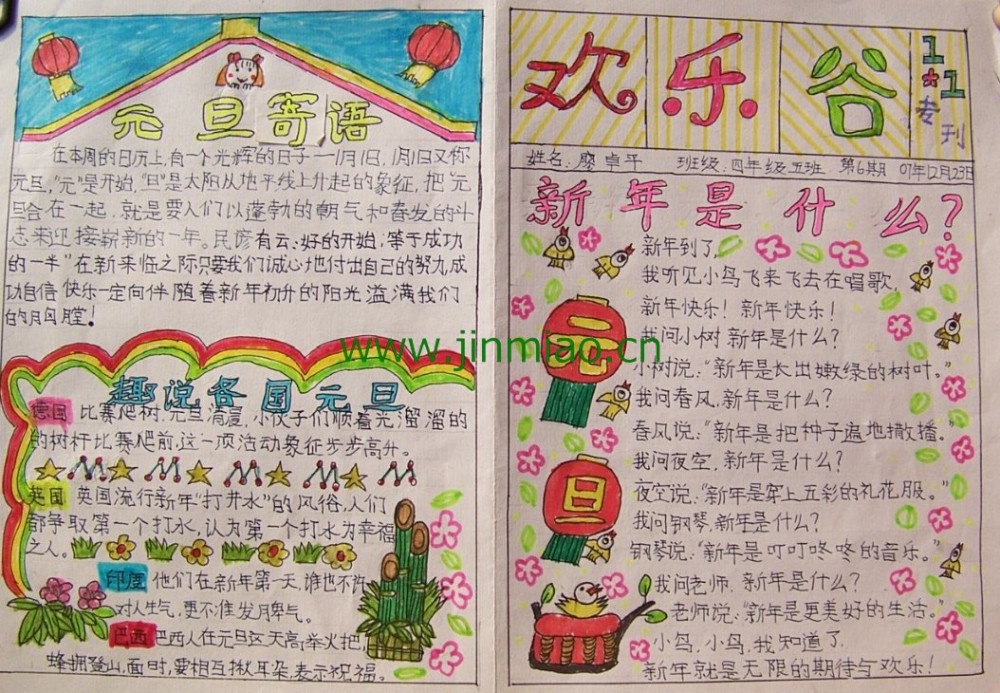 元旦寄语
在本周的日历上,有一个光辉的日子——1月1日,1月1日又称
元旦,"元"是开始,"旦"是太阳从地平线上升起的象征,把"元
旦合在一起,就是要人们以蓬勃的朝气和奋发的斗
志来迎接崭新的一年。民谚有云:好的开始,等于成功
的一半"在新来临之际只要我们诚心地付出自己的努力,成
功自信快乐一定向伴随着新年初升的阳光溢满我们
的胸膛!
趣说各国元旦
德国 比赛爬树,元旦清晨,小伙子们顺着光溜溜的
的树杆比赛爬前,这一项活动象征步步高升。
英国 英国流行新年"打井水"的风俗,人们
都争取第一个打水,认为第一个打水为幸福
之人。
印度 他们在新年第一天,谁也不许
对人生气,更不准发脾气。
巴西 巴西人在元旦这天高举火把,
蜂拥登山,面时,要相互揪耳朵,表示祝福。
欢乐谷
1★1
专刊
姓名:廖卓平 班级:四年级五班 第6期 07年12月23日
新年是什么?
新年到了,
我听见小鸟飞来飞去在唱歌,
新年快乐!新年快乐!
我问小树 新年是什么?
小树说:"新年是长出嫩绿的树叶。"
我问春风,新年是什么?
春风说:"新年是把种子遍地撒播。"
我问夜空,新年是什么?
夜空说:"新年是穿上五彩的礼花服。"
我问钢琴,新年是什么?
钢琴说:"新年是叮叮咚咚的音乐。"
我问老师,新年是什么?
老师说:"新年是更美好的生活。"
小鸟,小鸟,我知道了
新年就是无限的期待与欢乐!
元
旦
www.jinmiao.cn